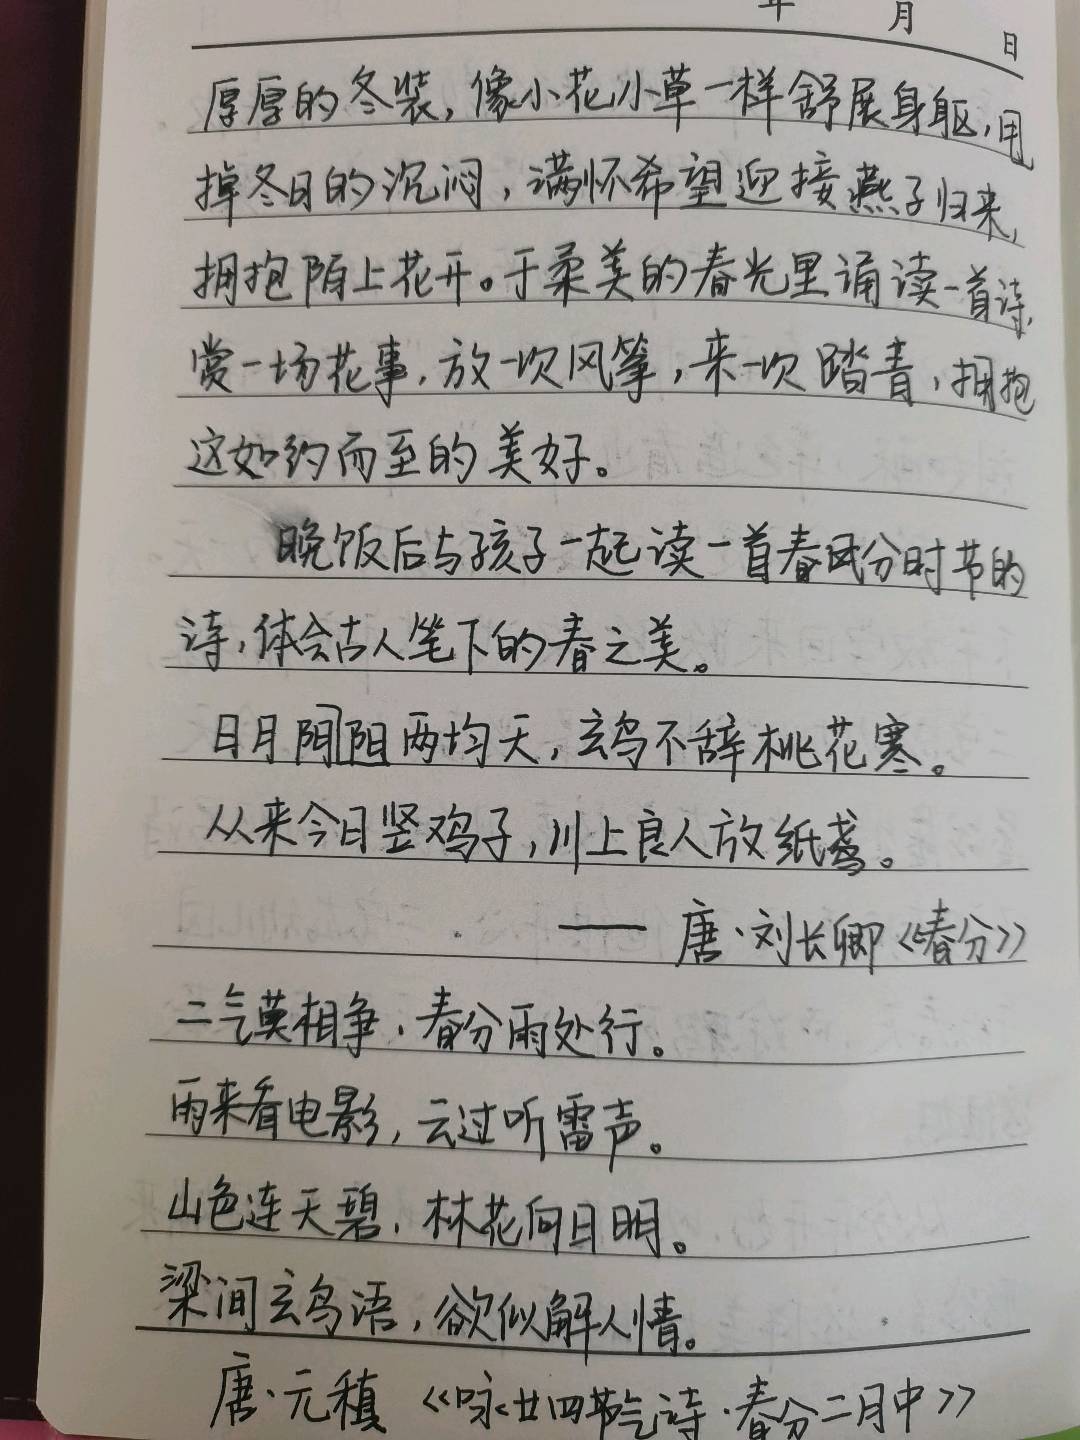 年 月 日
厚厚的冬装,像小花小草一样舒展身躯,甩
掉冬日的沉闷,满怀希望迎接燕子归来,
拥抱陌上花开。于柔美的春光里诵读一首诗,
赏一场花事,放一次风筝,来一次踏青,拥抱
这如约而至的美好。
晚饭后与孩子一起读一首春分时节的
诗,体会古人笔下的春之美。
日月阴阳两均天,玄鸟不辞桃花寒。
从来今日竖鸡子,川上良人放纸鸢。
—— 唐·刘长卿《春分》
二气莫相争,春分雨处行。
雨来看电影,云过听雷声。
山色连天碧,林花向日明。
梁间玄鸟语,欲似解人情。
唐·元稹《咏廿四节气诗·春分二月中》